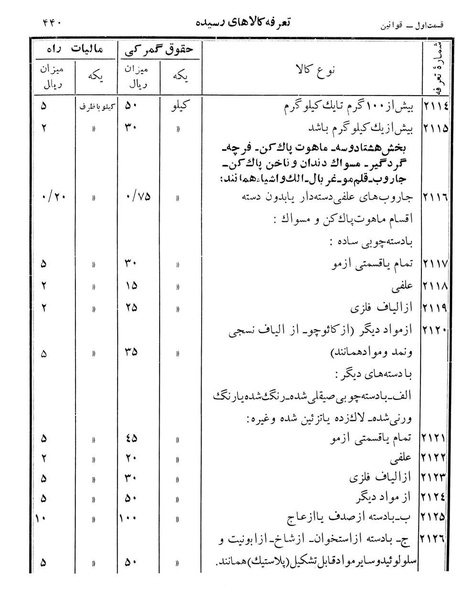 قسمت اول ــ قوانین تعرفه کالاهای رسیده ۴۴۰
شمارهٔ تعرفه نوع کالا حقوق گمرکی مالیات راه
یکه میزان ریال یکه میزان ریال
۲۱۱٤ بیش از ۱۰۰ گرم تا یك کیلوگرم کیلو ۵۰ کیلو باظرف ۵
۲۱۱۵ بیش از یك کیلوگرم باشد » ۳۰ » ۲
بخش هشتادوسه ــ ماهوت پاك کن ــ فرچه ــ
گردگیر ــ مسواك دندان و ناخن پاك کن ــ
جاروب ــ قلم مو ــ غربال ــ الك و اشیاء همانند :
۲۱۱٦ جاروب‌های علفی دسته‌دار یا بدون دسته » ۰/۷۵ » ۰/۲۰
اقسام ماهوت پاك کن و مسواك :
با دسته چوبی ساده :
۲۱۱۷ تمام یا قسمتی از مو » ۳۰ » ۵
۲۱۱۸ علفی » ۱۵ » ۲
۲۱۱۹ از الیاف فلزی » ۲۵ » ۲
۲۱۲۰ از مواد دیگر (از کائوچو ــ از الیاف نسجی
ونمد و مواد همانند) » ۳۵ » ۵
با دسته‌های دیگر :
الف ــ با دسته چوبی صیقلی شده ــ رنگ شده یا رنگ
ورنی شده ــ لاك زده یا تزئین شده وغیره :
۲۱۲۱ تمام یا قسمتی از مو » ٤۵ » ۵
۲۱۲۲ علفی » ۲۰ » ۲
۲۱۲۳ از الیاف فلزی » ۳۰ » ۵
۲۱۲٤ از مواد دیگر » ۵۰ » ۵
۲۱۲۵ ب ــ با دسته از صدف یا از عاج » ۱۰۰ » ۱۰
۲۱۲٦ ج ــ با دسته از استخوان ــ از شاخ ــ از ابونیت و
سلولوئید و سایر مواد قابل تشکیل (پلاستیك) همانند . » ۵۰ » ۵